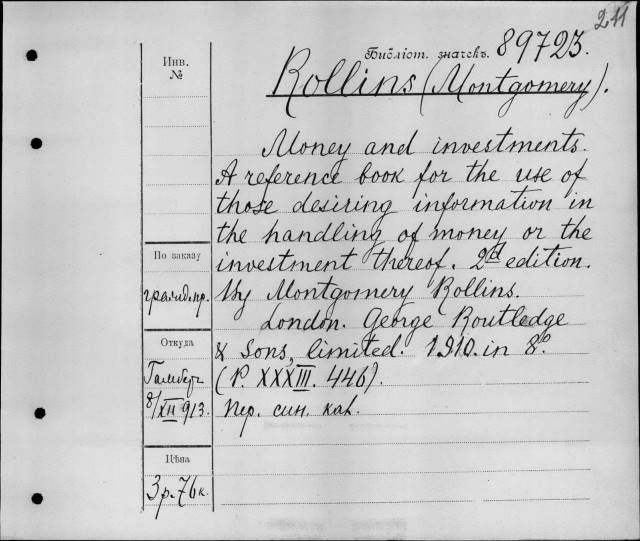 241
Библіот. значекъ. 89723.
Инв.
№
Rollins (Montgomery).
Money and investments.
A reference book for the use of
those desiring information in
the handling of money or the
По заказу
investment thereof. 2d edition.
By Montgomery Rollins.
London. George Routledge
Откуда
& Sons, limited. 1910. in 8º.
(P. XXXIII. 446).
8/XII 913.
Пер. син. кал.
Цѣна
3 р. 76 к.